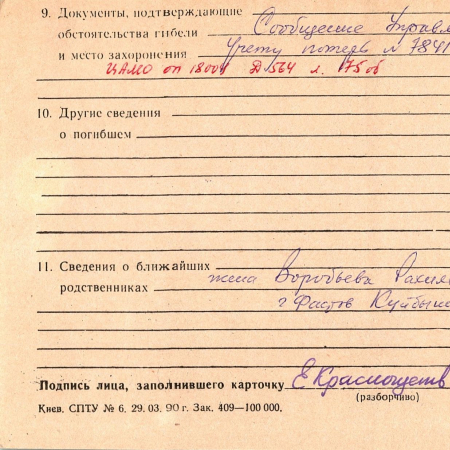 9. Документы, подтверждающие Сообщение Управл
обстоятельства гибели
и место захоронения учету потерь N 7841
ЦАМО оп 18004 Д 564 л. 175об
10. Другие сведения
о погибшем
11. Сведения о ближайших
родственниках жена Воробьева Рахил
г Фастов Куйбыш
Подпись лица, заполнившего карточку
(разборчиво)
Киев. СПТУ № 6. 29. 03. 90 г. Зак. 409—100 000.